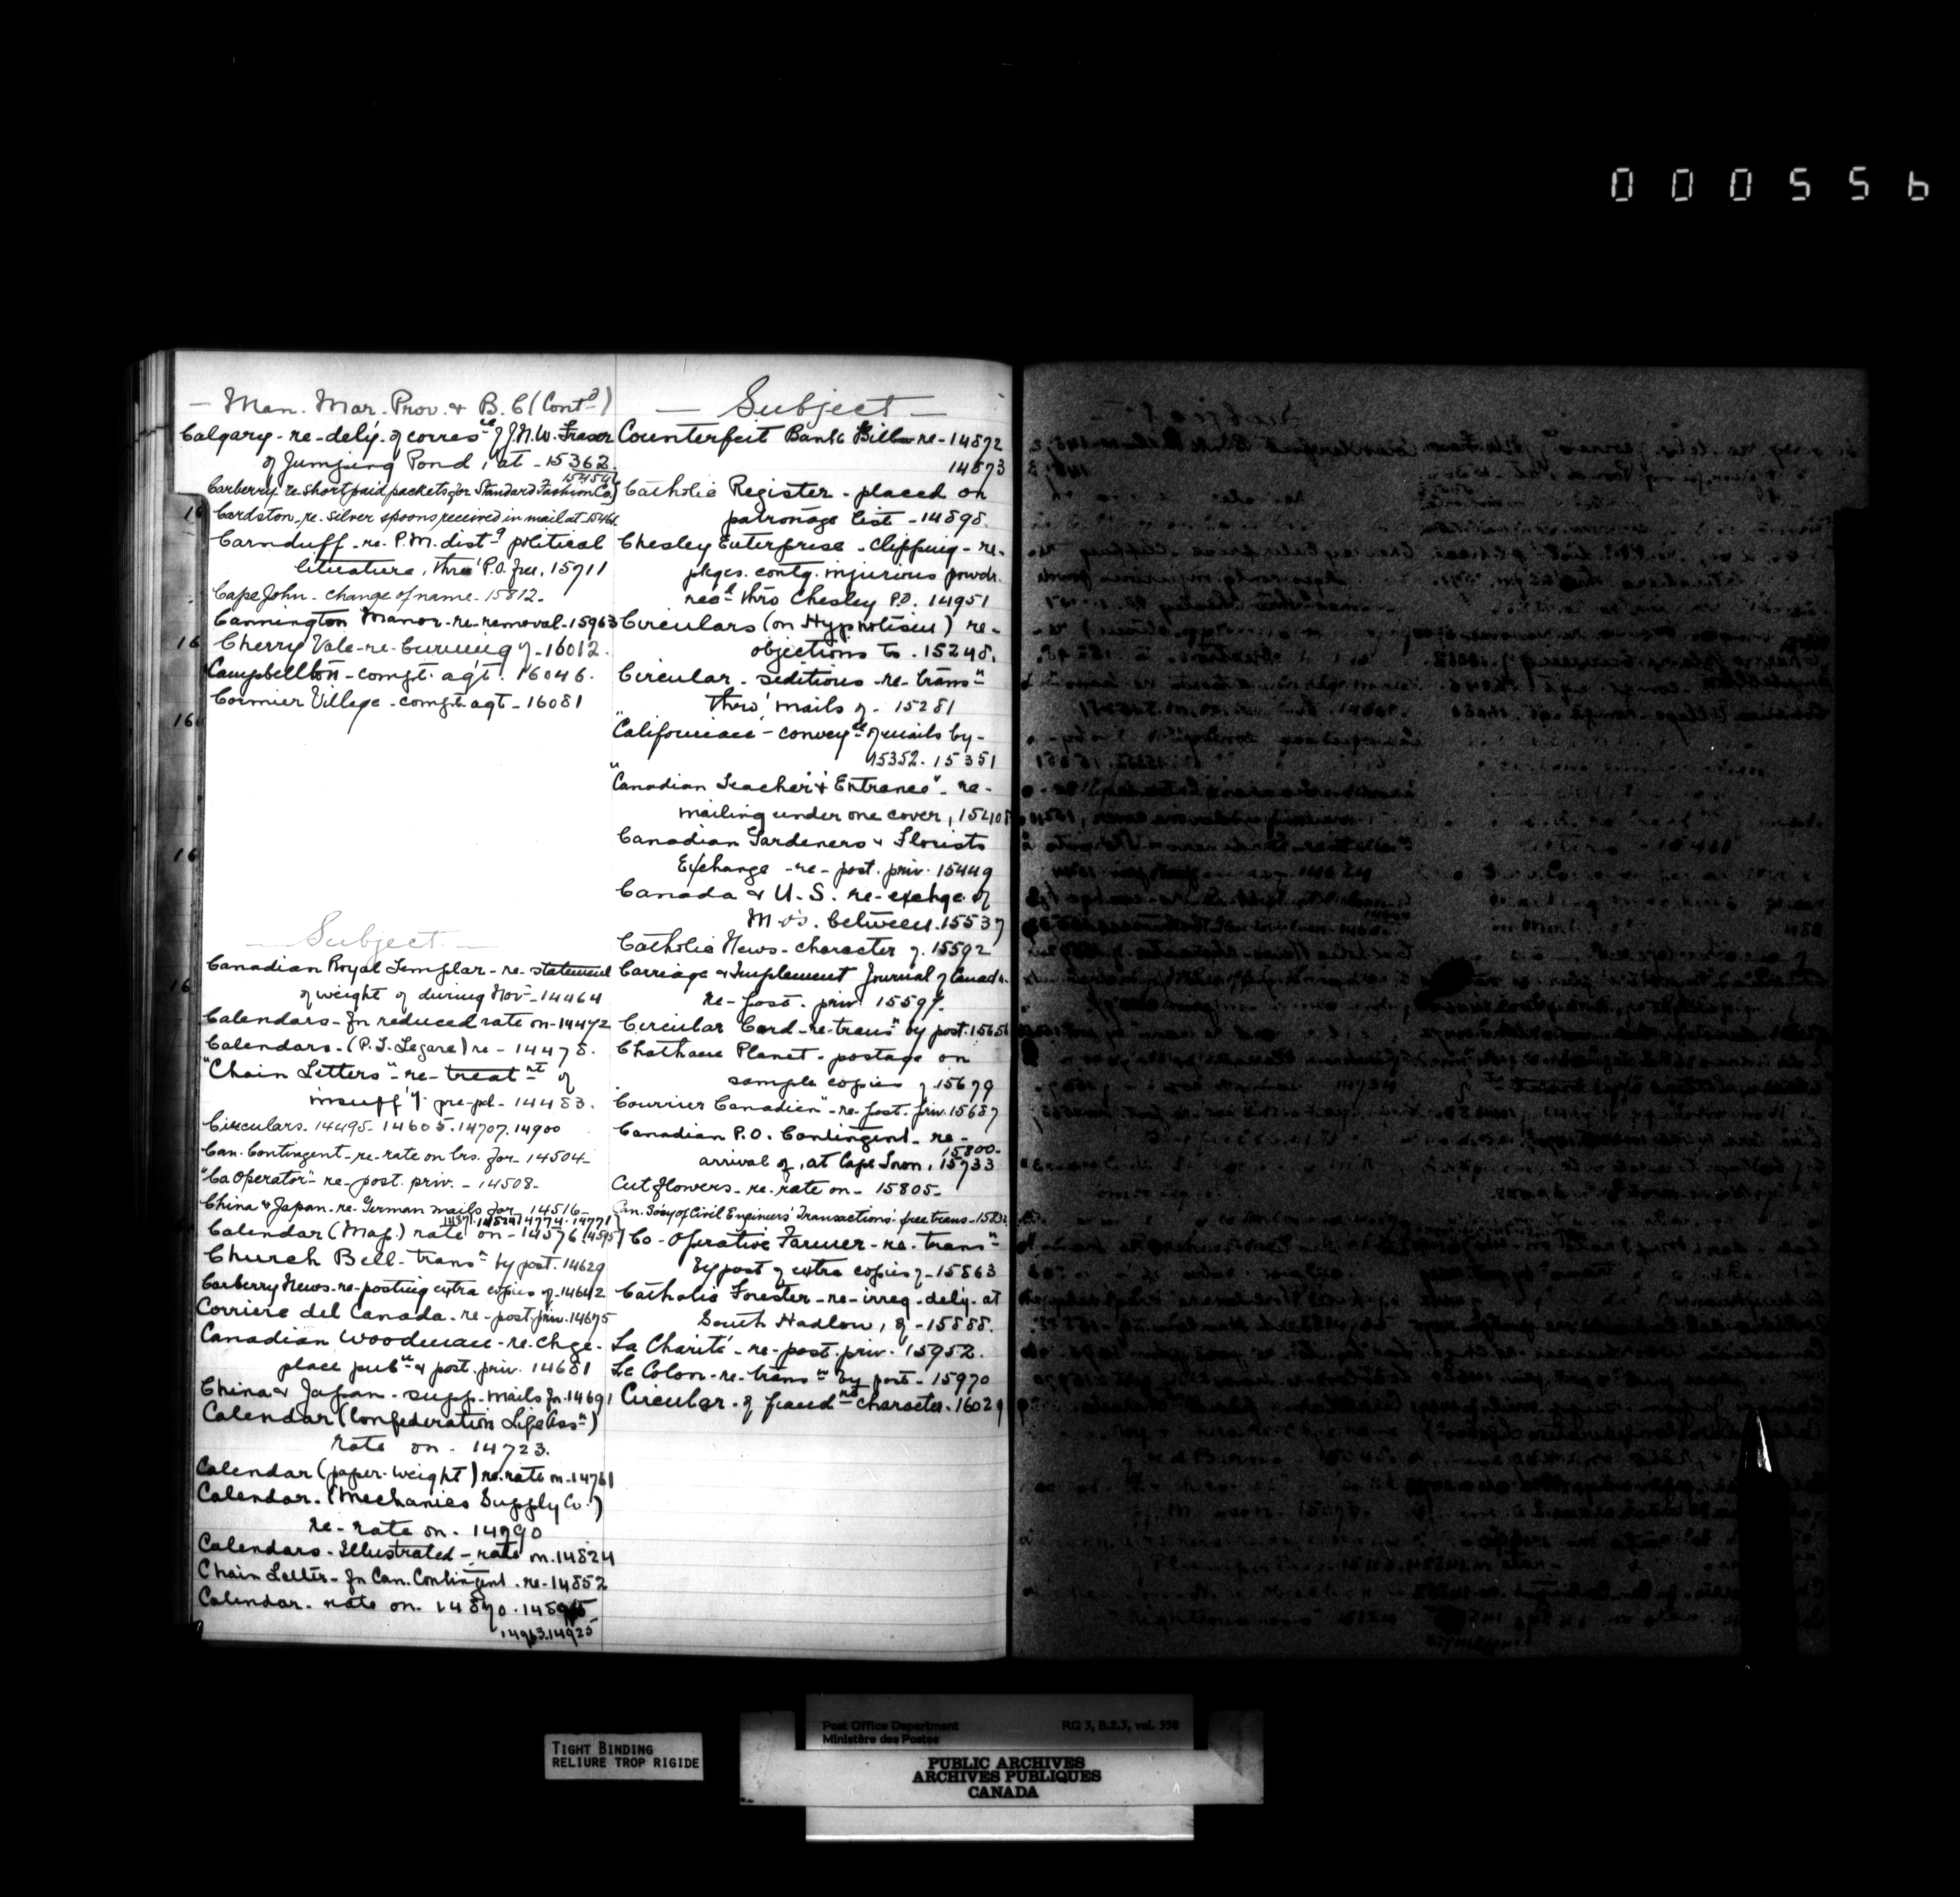 000556
— Man. Mar. Prov. & B.C (Contd)
Calgary - re - dely. of corresce of J.N.W. Fraser
of Jumping Pond, at - 15362.
15459
Carberry re. short paid packets for Standard Fashion Co)
Cardston - re. silver spoons received in mail at - 15461
Carnduff - re. P.M. distg political
literature, thro' P.O. free, 15711
Cape John - change of name - 15812 -
Cannington Manor - re - removal - 15963
Cherry Vale - re - burning of - 16012.
Campbellton - compt. agt. 16046.
Cormier Village - compt. agt - 16081
— Subject —
Canadian Royal Templar - re - statement
of weight of during Nov - 14464
Calendars - for reduced rate on - 14472
Calendars - (P.T. Legare) re - 14478.
"Chain Letters" - re - treatnt of
insuff'y. pre-pd - 14483.
Circulars. 14495 - 14605. 14707. 14900
Can. Contingent - re - rate on lrs. for - 14504 -
"Co Operator" - re - post. priv. - 14508 -
China & Japan - re - German mails for - 14516 -
14774. 14771
Calendar (Map.) rate on - 14576
Church Bell - transn by post. 14629
Carberry News - re - posting extra copies of - 14642
Corriere del Canada - re - post. priv. 14675
Canadian Woodman - re. chge.
place pubn & post. priv. 14681
China & Japan - supp. mails for. 14691
Calendar (Confederation Life Assn)
rate on - 14723.
Calendar (paper-weight) re. rate on - 14761
Calendar. (Mechanics Supply Co.)
re - rate on - 14790
Calendars - Illustrated - rate on. 14824
Chain Letter - for Can. Contingent. re - 14852
Calendar - rate on. 14870.
14963. 14925
— Subject —
Counterfeit Bank Bills re - 14872
14873
Catholic Register - placed on
patronage list - 14898.
Chesley Enterprise - clipping - re -
pkges. contg. injurious powdr.
recd thro Chesley P.O. 14951
Circulars (on Hypnotism) re -
objections to. 15248.
Circular - seditious - re - transn
thro' mails of - 15281
"Californian - conveyce of mails by -
15352. 15351
"Canadian Teacher" & "Entrance" - re -
mailing under one cover, 15408
Canadian Gardeners & Florists
Exchange - re - post. priv. 15449
Canada & U.S. re - exchge of
M.O's. between. 15537
Catholic News - character of. 15592
Carriage & Implement Journal of Canada
re - post. priv. 15597.
Circular Card - re - transn by post. 15656
Chatham Planet - postage on
sample copies of 15679
"Courrier Canadien" - re - post. priv. 15687
Canadian P.O. Contingent - re -
15800 -
arrival of, at Cape Town, 15733
Cut flowers - re. rate on - 15805 -
Can. Socy of Civil Engineers' Transactions - free trans -
Co-Operative Farmer - re. transn
by post of extra copies of - 15863
Catholic Forester - re - irreg. dely. at
South Hadlow, of - 15888.
La Charité - re - post. priv. 15952.
Le Colon - re - transn by post - 15970
Circular - of fraudnt character. 16029
16
16
16
16
16
Post Office Department
Ministère des Postes
RG 3, B.2.3, vol. 558
TIGHT BINDING
RELIURE TROP RIGIDE
PUBLIC ARCHIVES
ARCHIVES PUBLIQUES
CANADA